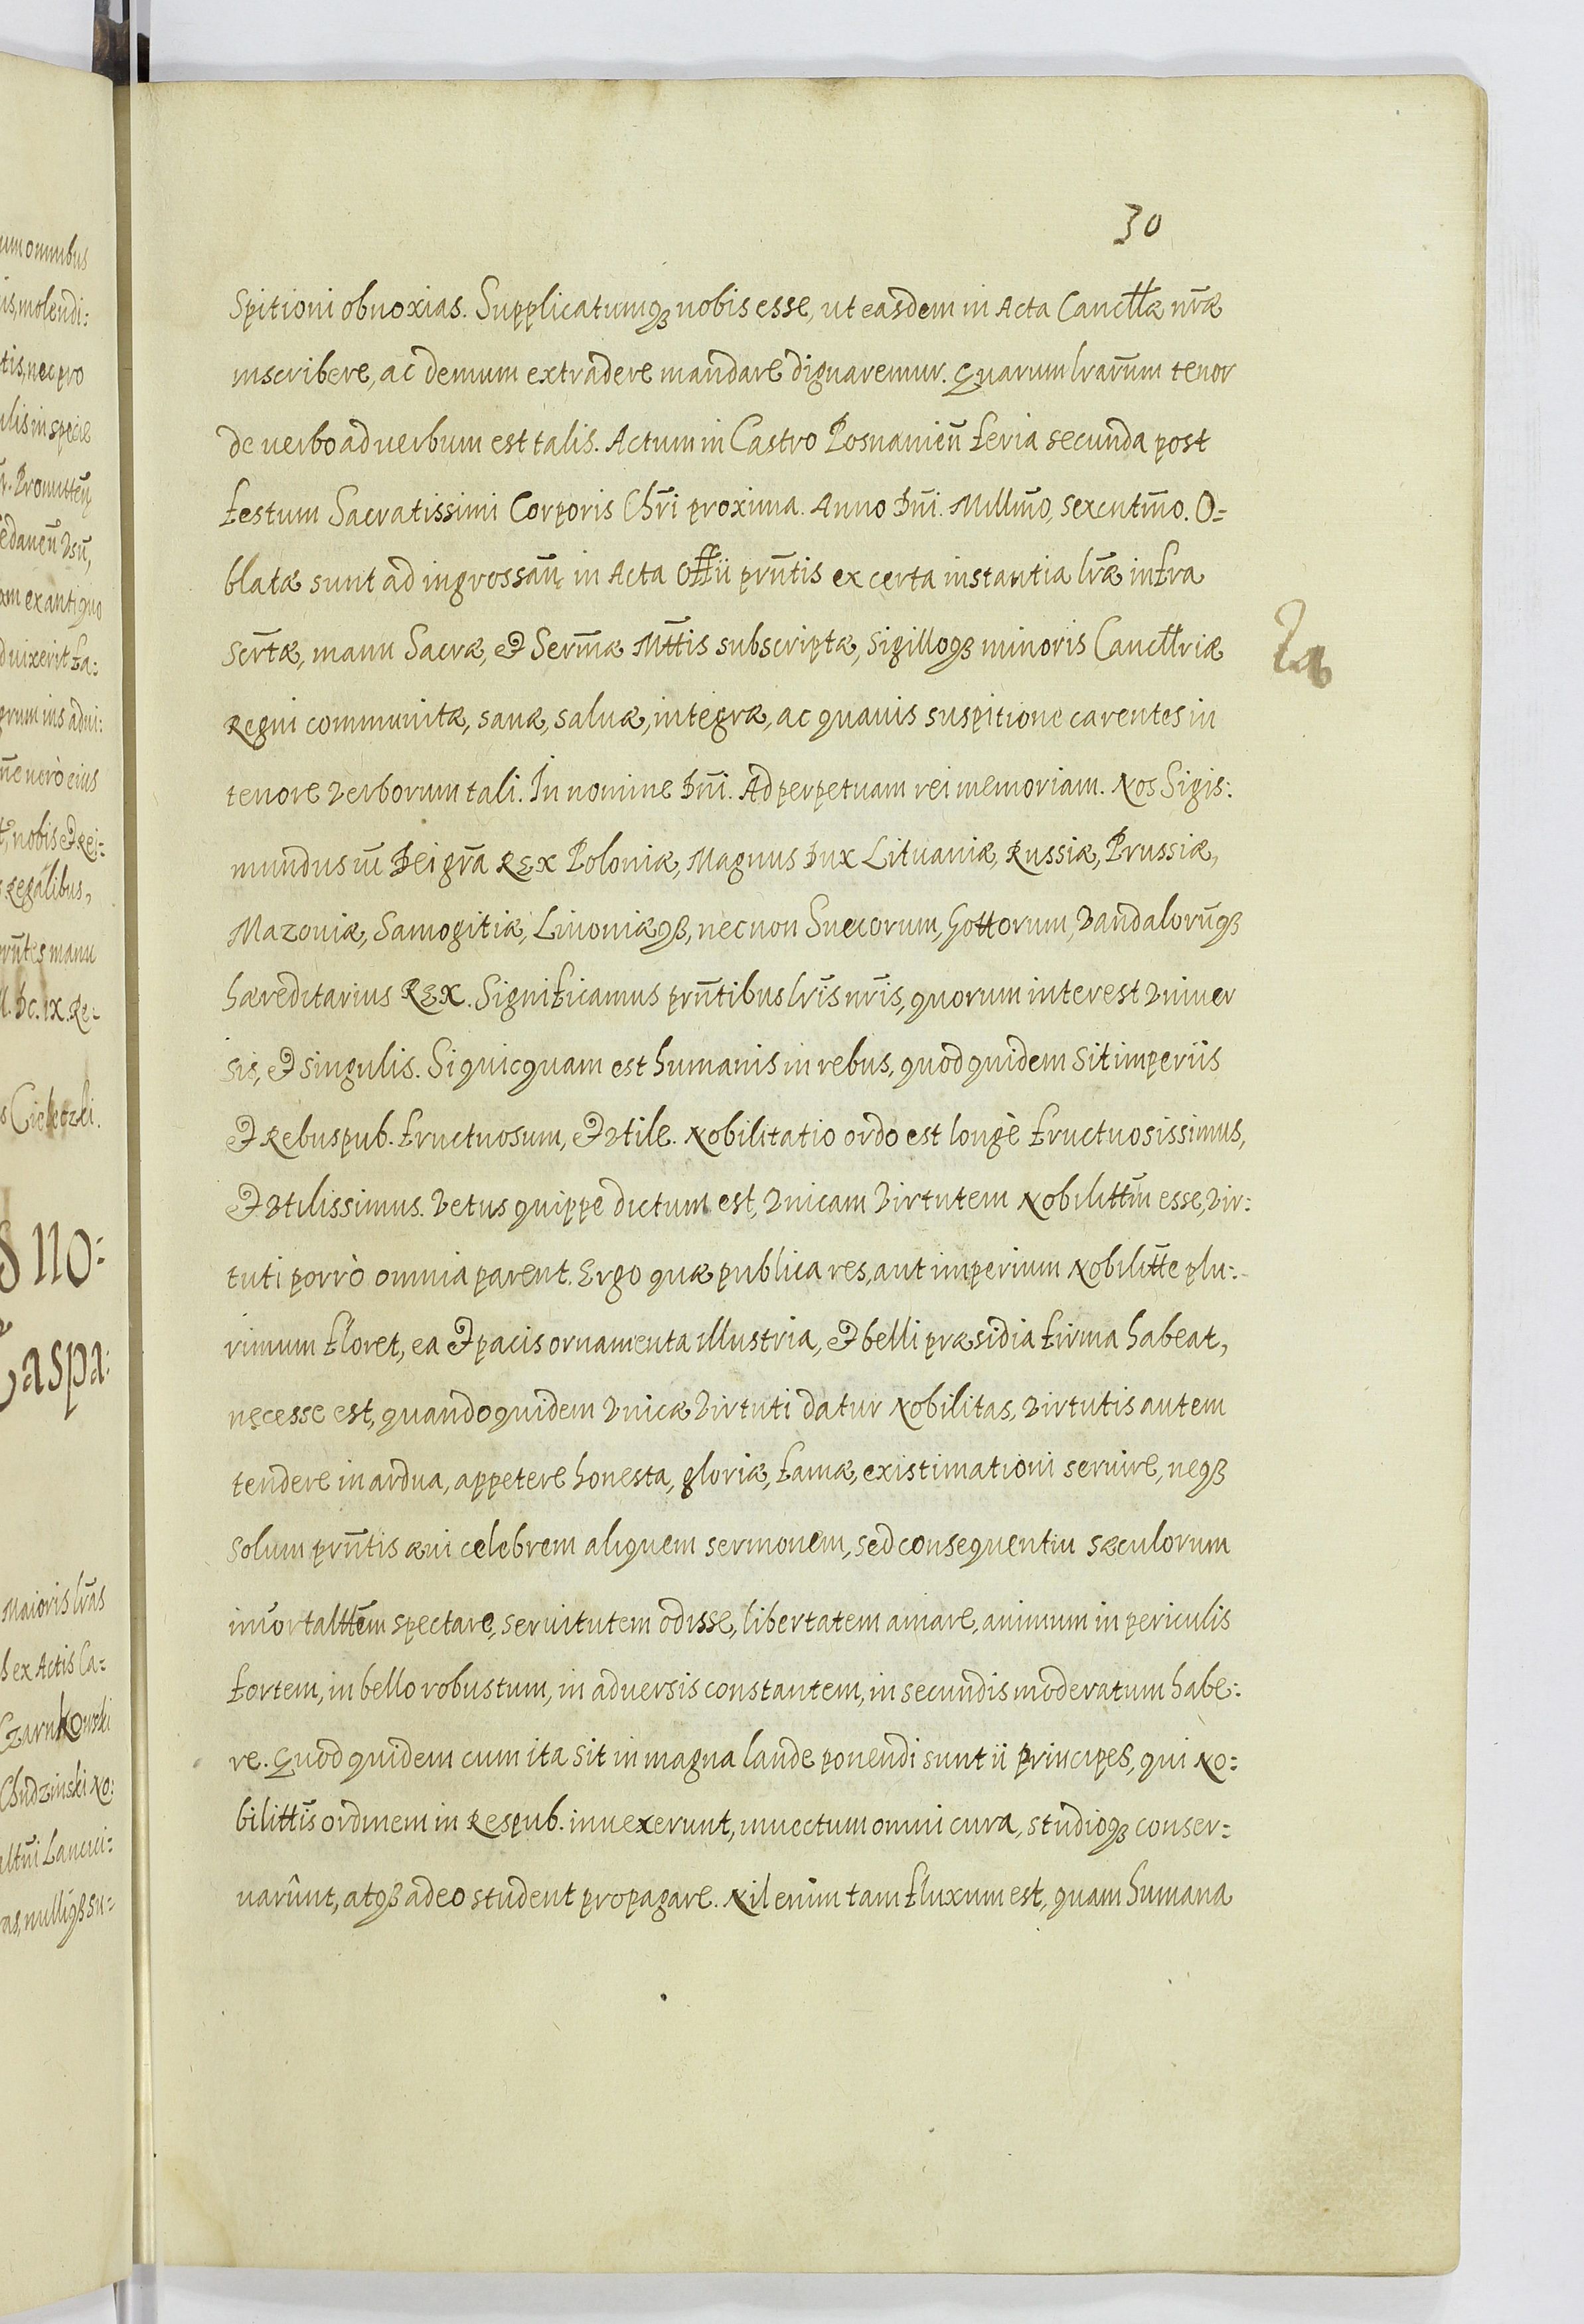 30
spitioni obnoxias. Supplicatumqȝ nobis esse, ut easdem in Acta Cancellæ nr̄æ
inscribere, ac demum extradere mandare dignaremur. Quarum lrarūm tenor
de verbo ad verbum est talis. Actum in Castro Posnanień feria secunda post
festum Sacratissimi Corporis Chr̄i proxima. Anno Dn̄i. Millm̄o, sexcntm̄o. O=
blatæ sunt ad ingrossan̄ in Acta Offii prn̄tis ex certa instantia lr̄æ infra
scr̄tæ, manu Sacræ, & Serm̄æ Mttis subscriptæ, sigilloqȝ minoris Cancllriæ
Regni communitæ, sanæ, saluæ, integræ, ac quauis suspitione carentes in
tenore verborum tali. In nomine Dn̄i. Ad perpetuam rei memoriam. Nos Sigis:
mundus iii Dei gr̄a Rex Poloniæ, Magnus Dux Lituaniæ, Russiæ, Prussiæ,
Mazouiæ, Samogitiæ, Liuoniæqȝ, necnon Suecorum, Gottorum, Vandalorūqȝ
hæreditarius Rex. Significamus prn̄tibus lr̄is nr̄is, quorum interest vniuer
sis, & singulis. Si quicquam est humanis in rebus, quod quidem sit imperiis
& Rebuspub. fructuosum, & vtile. Nobilitatio ordo est longè fructuosissimus,
& vtilissimus. Vetus quippe dictum est, vnicam virtutem Nobilittm̄ esse, vir:
tuti porrò omnia parent. Ergo quæ publica res, aut imperium Nobilitt̄e plu:
rimum floret, ea & pacis ornamenta illustria, & belli præsidia firma habeat,
necesse est, quandoquidem vnicæ virtuti datur Nobilitas, virtutis autem
tendere in ardua, appetere honesta, gloriæ, famæ, existimationi seruire, neqȝ
solum prn̄tis æui celebrem aliquem sermonem, sed consequentiu sæculorum
im̄ortalttēm spectare, seruitutem odisse, libertatem amare, animum in periculis
fortem, in bello robustum, in aduersis constantem, in secundis moderatum habe:
re. Quod quidem cum ita sit in magna laude ponendi sunt ii principes, qui No:
bilitt̄is ordinem in Respub. inuexerunt, inuectum omni cura, studioqȝ conser:
uarûnt, atqȝ adeo student propagare. Nil enim tam fluxum est, quam humana